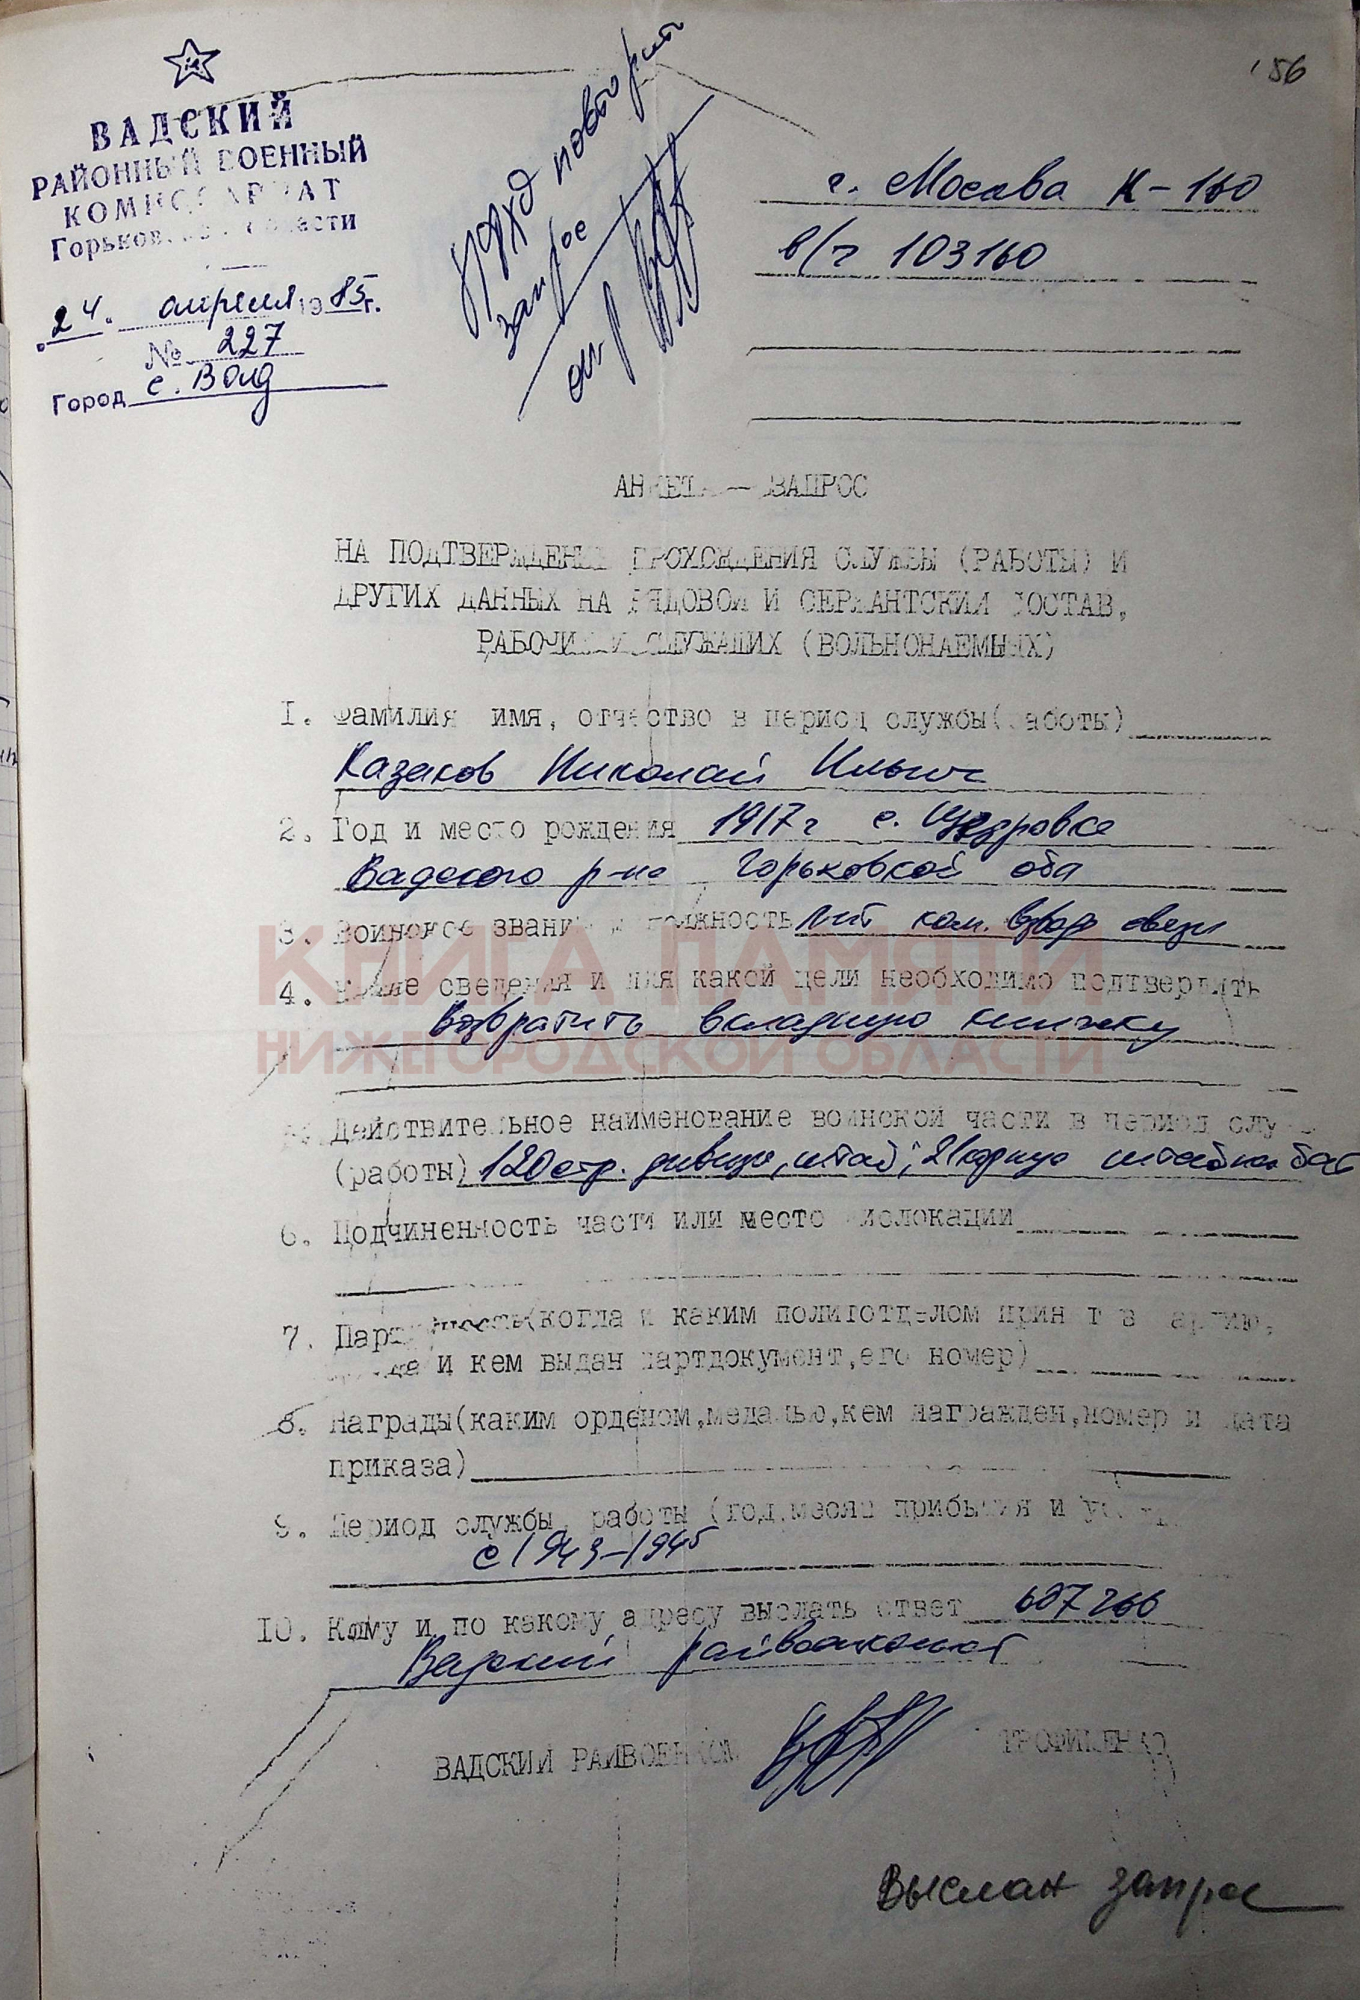 156
ВАДСКИЙ
РАЙОННЫЙ ВОЕННЫЙ
КОМИССАРИАТ
Горьковской области
24. апреля 1985г.
№ 227
Город с. Вад
повтор
запрос
г. Москва К-160
в/ч 103160
АНКЕТА — ЗАПРОС
НА ПОДТВЕРЖДЕНИЕ ПРОХОЖДЕНИЯ СЛУЖБЫ (РАБОТЫ) И
ДРУГИХ ДАННЫХ НА РЯДОВОЙ И СЕРЖАНТСКИЙ СОСТАВ,
РАБОЧИХ И СЛУЖАЩИХ (ВОЛЬНОНАЕМНЫХ)
1. Фамилия имя, отчество в период службы(работы)
Казаков Николай Ильич
2. Год и место рождения 1917г с.
Вадского р-на Горьковской обл
3. Воинское звание и должность лит ком. взвода связи
4. Какие сведения и для какой цели необходимо подтвердить
Возвратить вкладную книжку
КНИГА ПАМЯТИ
НИЖЕГОРОДСКОЙ ОБЛАСТИ
5. Действительное наименование воинской части в период служ
(работы) 120 стр. дивизия, штаб; 21 корпус бат
6. Подчиненность части или место дислокации
7. Партийность(когда и каким политотделом принят в партию,
где и кем выдан партдокумент,его номер)
8. Награды(каким орденом,медалью,кем награжден,номер и дата
приказа)
9. Период службы, работы (год,месяц прибытия и
с 1943-1945
10. Кому и по какому адресу выслать ответ 607266
Вадский райвоенкомат
ВАДСКИЙ РАЙВОЕНКОМ ТРОФИМЕНКО
Выслан запрос